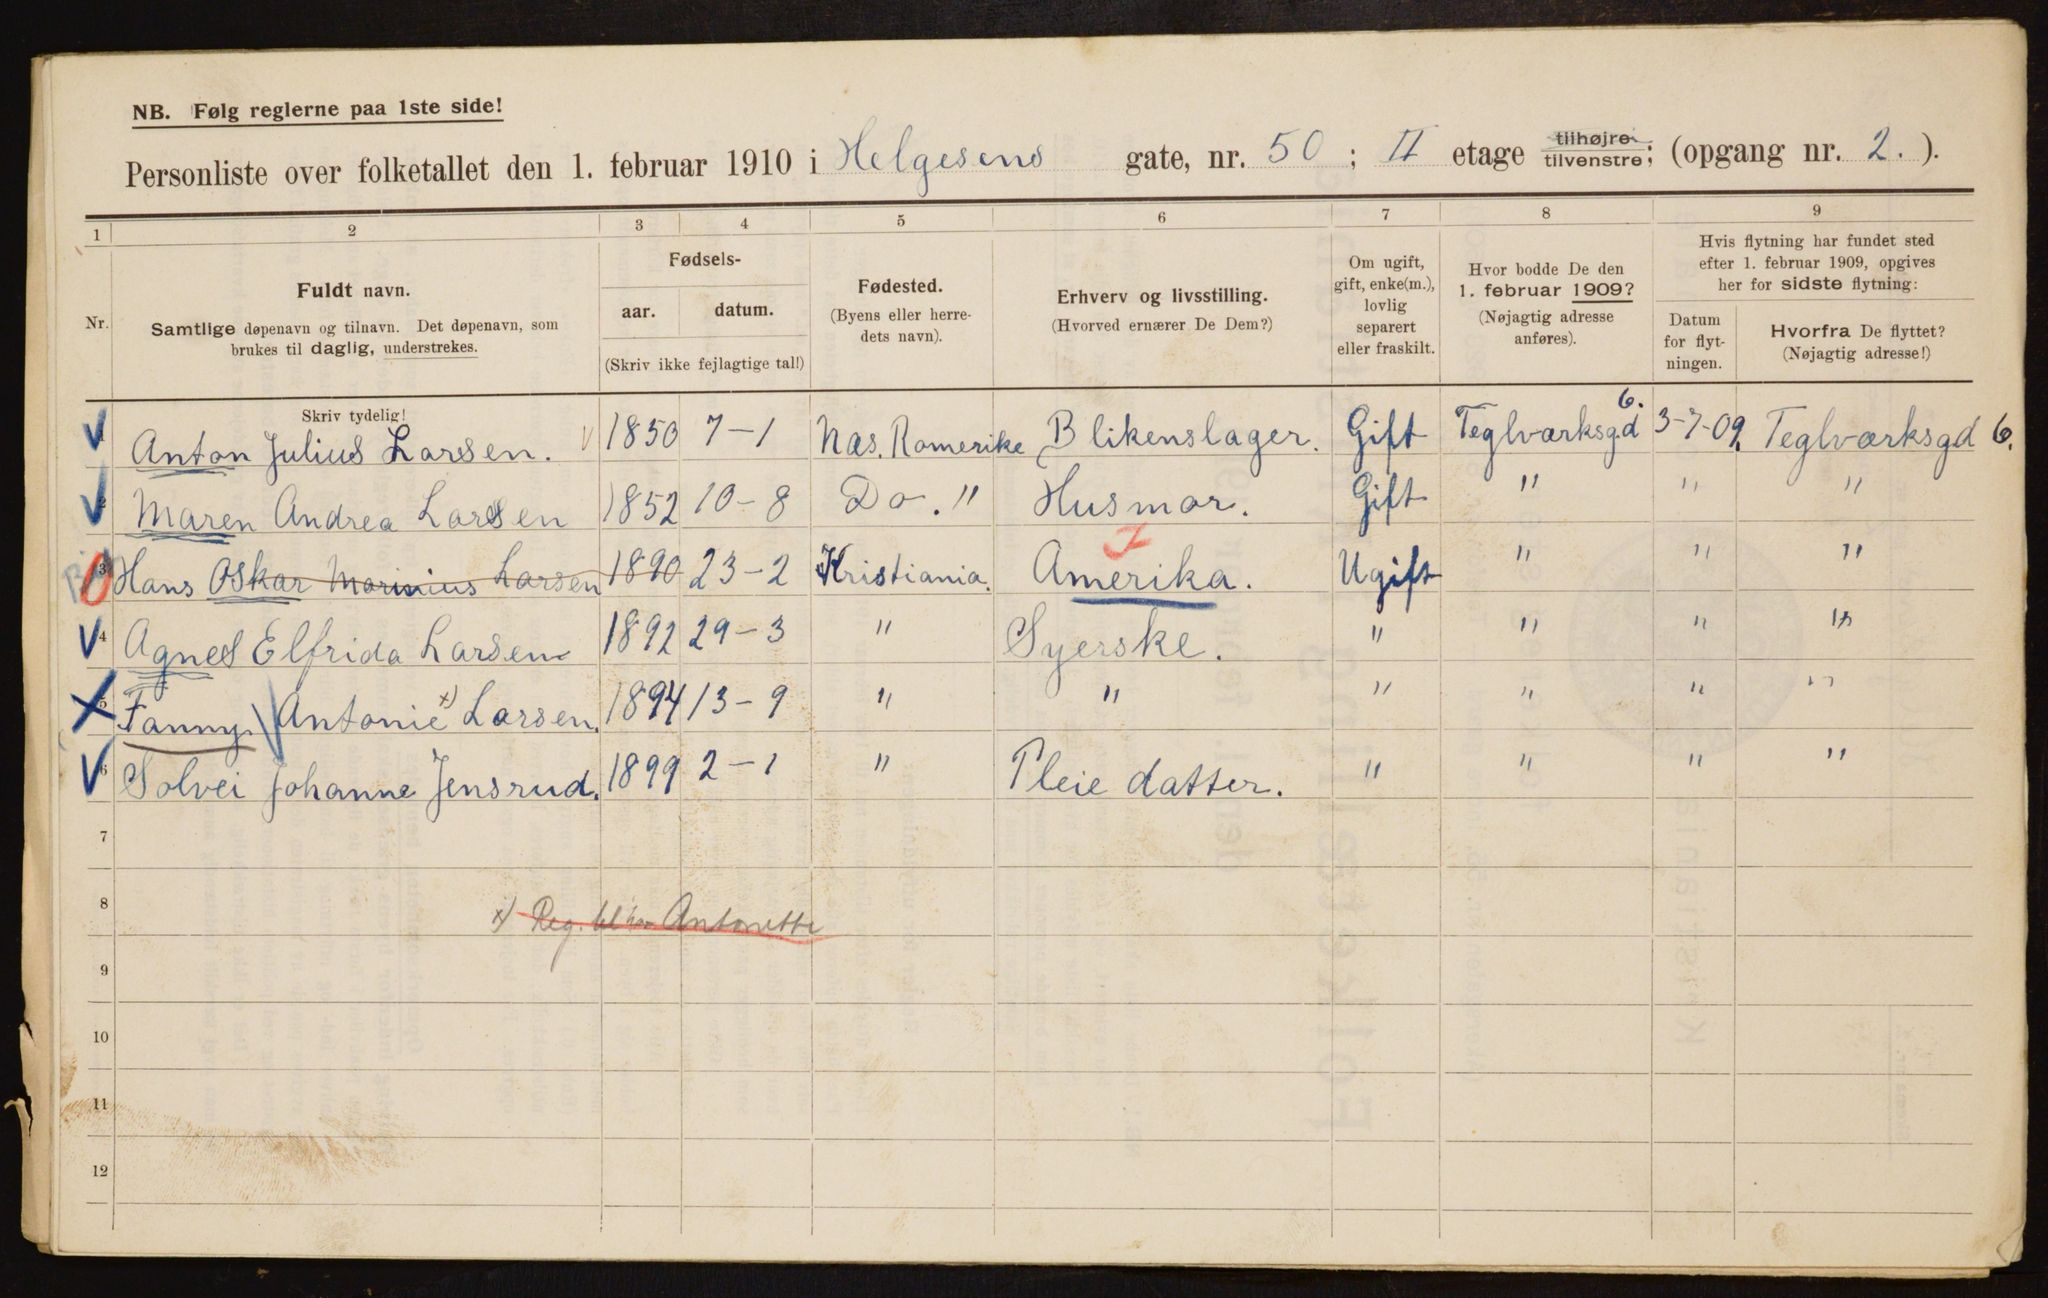 NB. Følg reglerne paa 1ste side!
Personliste over folketallet den 1. februar 1910 i Helgesens gate, nr. 50; II etage tilhøjre tilvenstre; (opgang nr. 2.).
1 2 3 4 5 6 7 8 9
Nr.
Fuldt navn.
Samtlige døpenavn og tilnavn. Det døpenavn, som
brukes til daglig, understrekes.
Fødsels-
aar. datum.
(Skriv ikke fejlagtige tal!)
Fødested.
(Byens eller herre-
dets navn).
Erhverv og livsstilling.
(Hvorved ernærer De Dem?)
Om ugift,
gift, enke(m.),
lovlig
separert
eller fraskilt.
Hvor bodde De den
1. februar 1909?
(Nøjagtig adresse
anføres).
Hvis flytning har fundet sted
efter 1. februar 1909, opgives
her for sidste flytning:
Datum
for flyt-
ningen.
Hvorfra De flyttet?
(Nøjagtig adresse!)
Skriv tydelig!
Anton Julius Larsen. 1850 7-1 Næs. Romerike Blikenslager. Gift Teglværksgd 6. 3-7-09. Teglværksgd 6.
2 Maren Andrea Larsen 1852 10-8 Do. " Husmor. Gift " " "
3 Hans Oskar Marinius Larsen 1890 23-2 Kristiania. Amerika. Ugift " " "
4 Agnes Elfrida Larsen 1892 29-3 " Syerske. " " " "
5 Fanny Antonie x) Larsen. 1894 13-9 " " " " " "
6 Solvei Johanne Jensrud. 1899 2-1 " Pleie datter. " " " "
7
8
x) Reg. Antonette
9
10
11
12